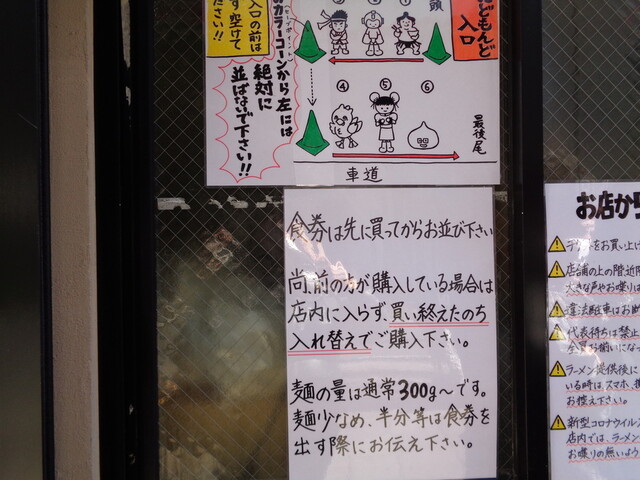 入口の前は
空けて
ださい!!
カラーコーンから左には
絶対に
並ばないで下さい!!
頭
ほどもんど
入口
④
⑤
⑥
最後尾
車道
食券は先に買ってからお並び下さい
尚、前の方が購入している場合は
店内に入らず、買い終えたのち
入れ替えでご購入下さい。
麺の量は通常300g～です。
麺少なめ、半分等は食券を
出す際にお伝え下さい。
お店か
をお買い上げ
店舗の上の階近隣
大きな声やお喋りは
違法駐車はお断
代表待ちは禁止
全員お揃いになっ
ラーメン提供後に
いる時は、スマホ、携
お控え下さい。
新型コロナウイル
店内では、ラーメ
お喋りの無いよう